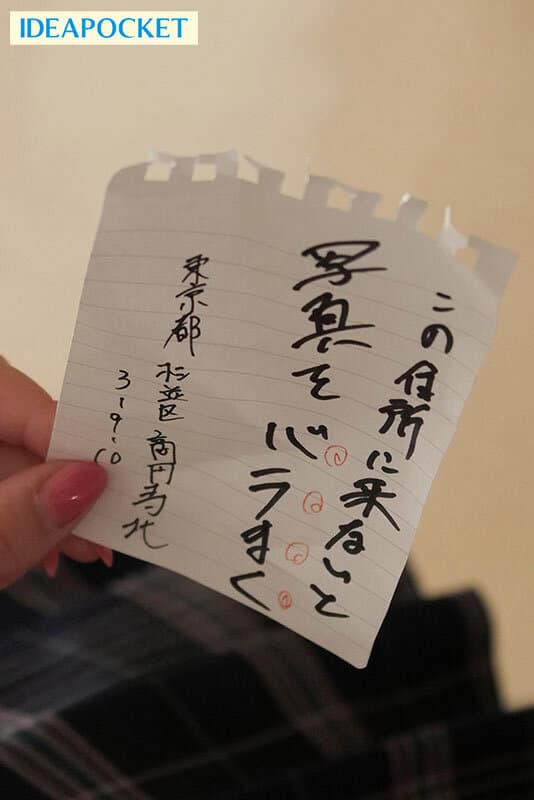 IDEAPOCKET
この住所に来ないと
写真を
バラまく
東京都
杉並区高円寺北
3-9-10